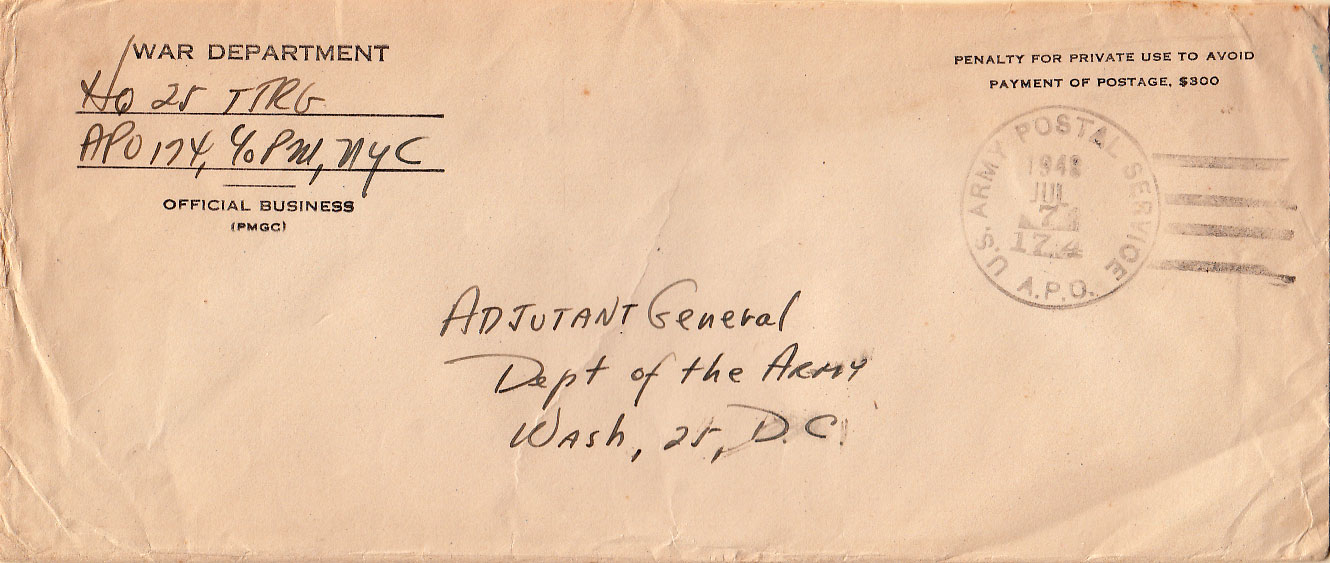 WAR DEPARTMENT
HQ 25 TTRG
APO 174, c/o PM, NYC
OFFICIAL BUSINESS
(PMGC)
PENALTY FOR PRIVATE USE TO AVOID
PAYMENT OF POSTAGE, $300
U.S. ARMY POSTAL SERVICE
1948
JUL
7
174
A.P.O.
ADJUTANT General
Dept of the ARMY
Wash, 25, D.C.